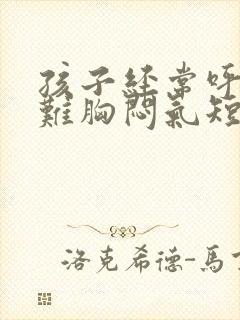 孩子经常呼
難胸悶氣短
洛克希德-馬